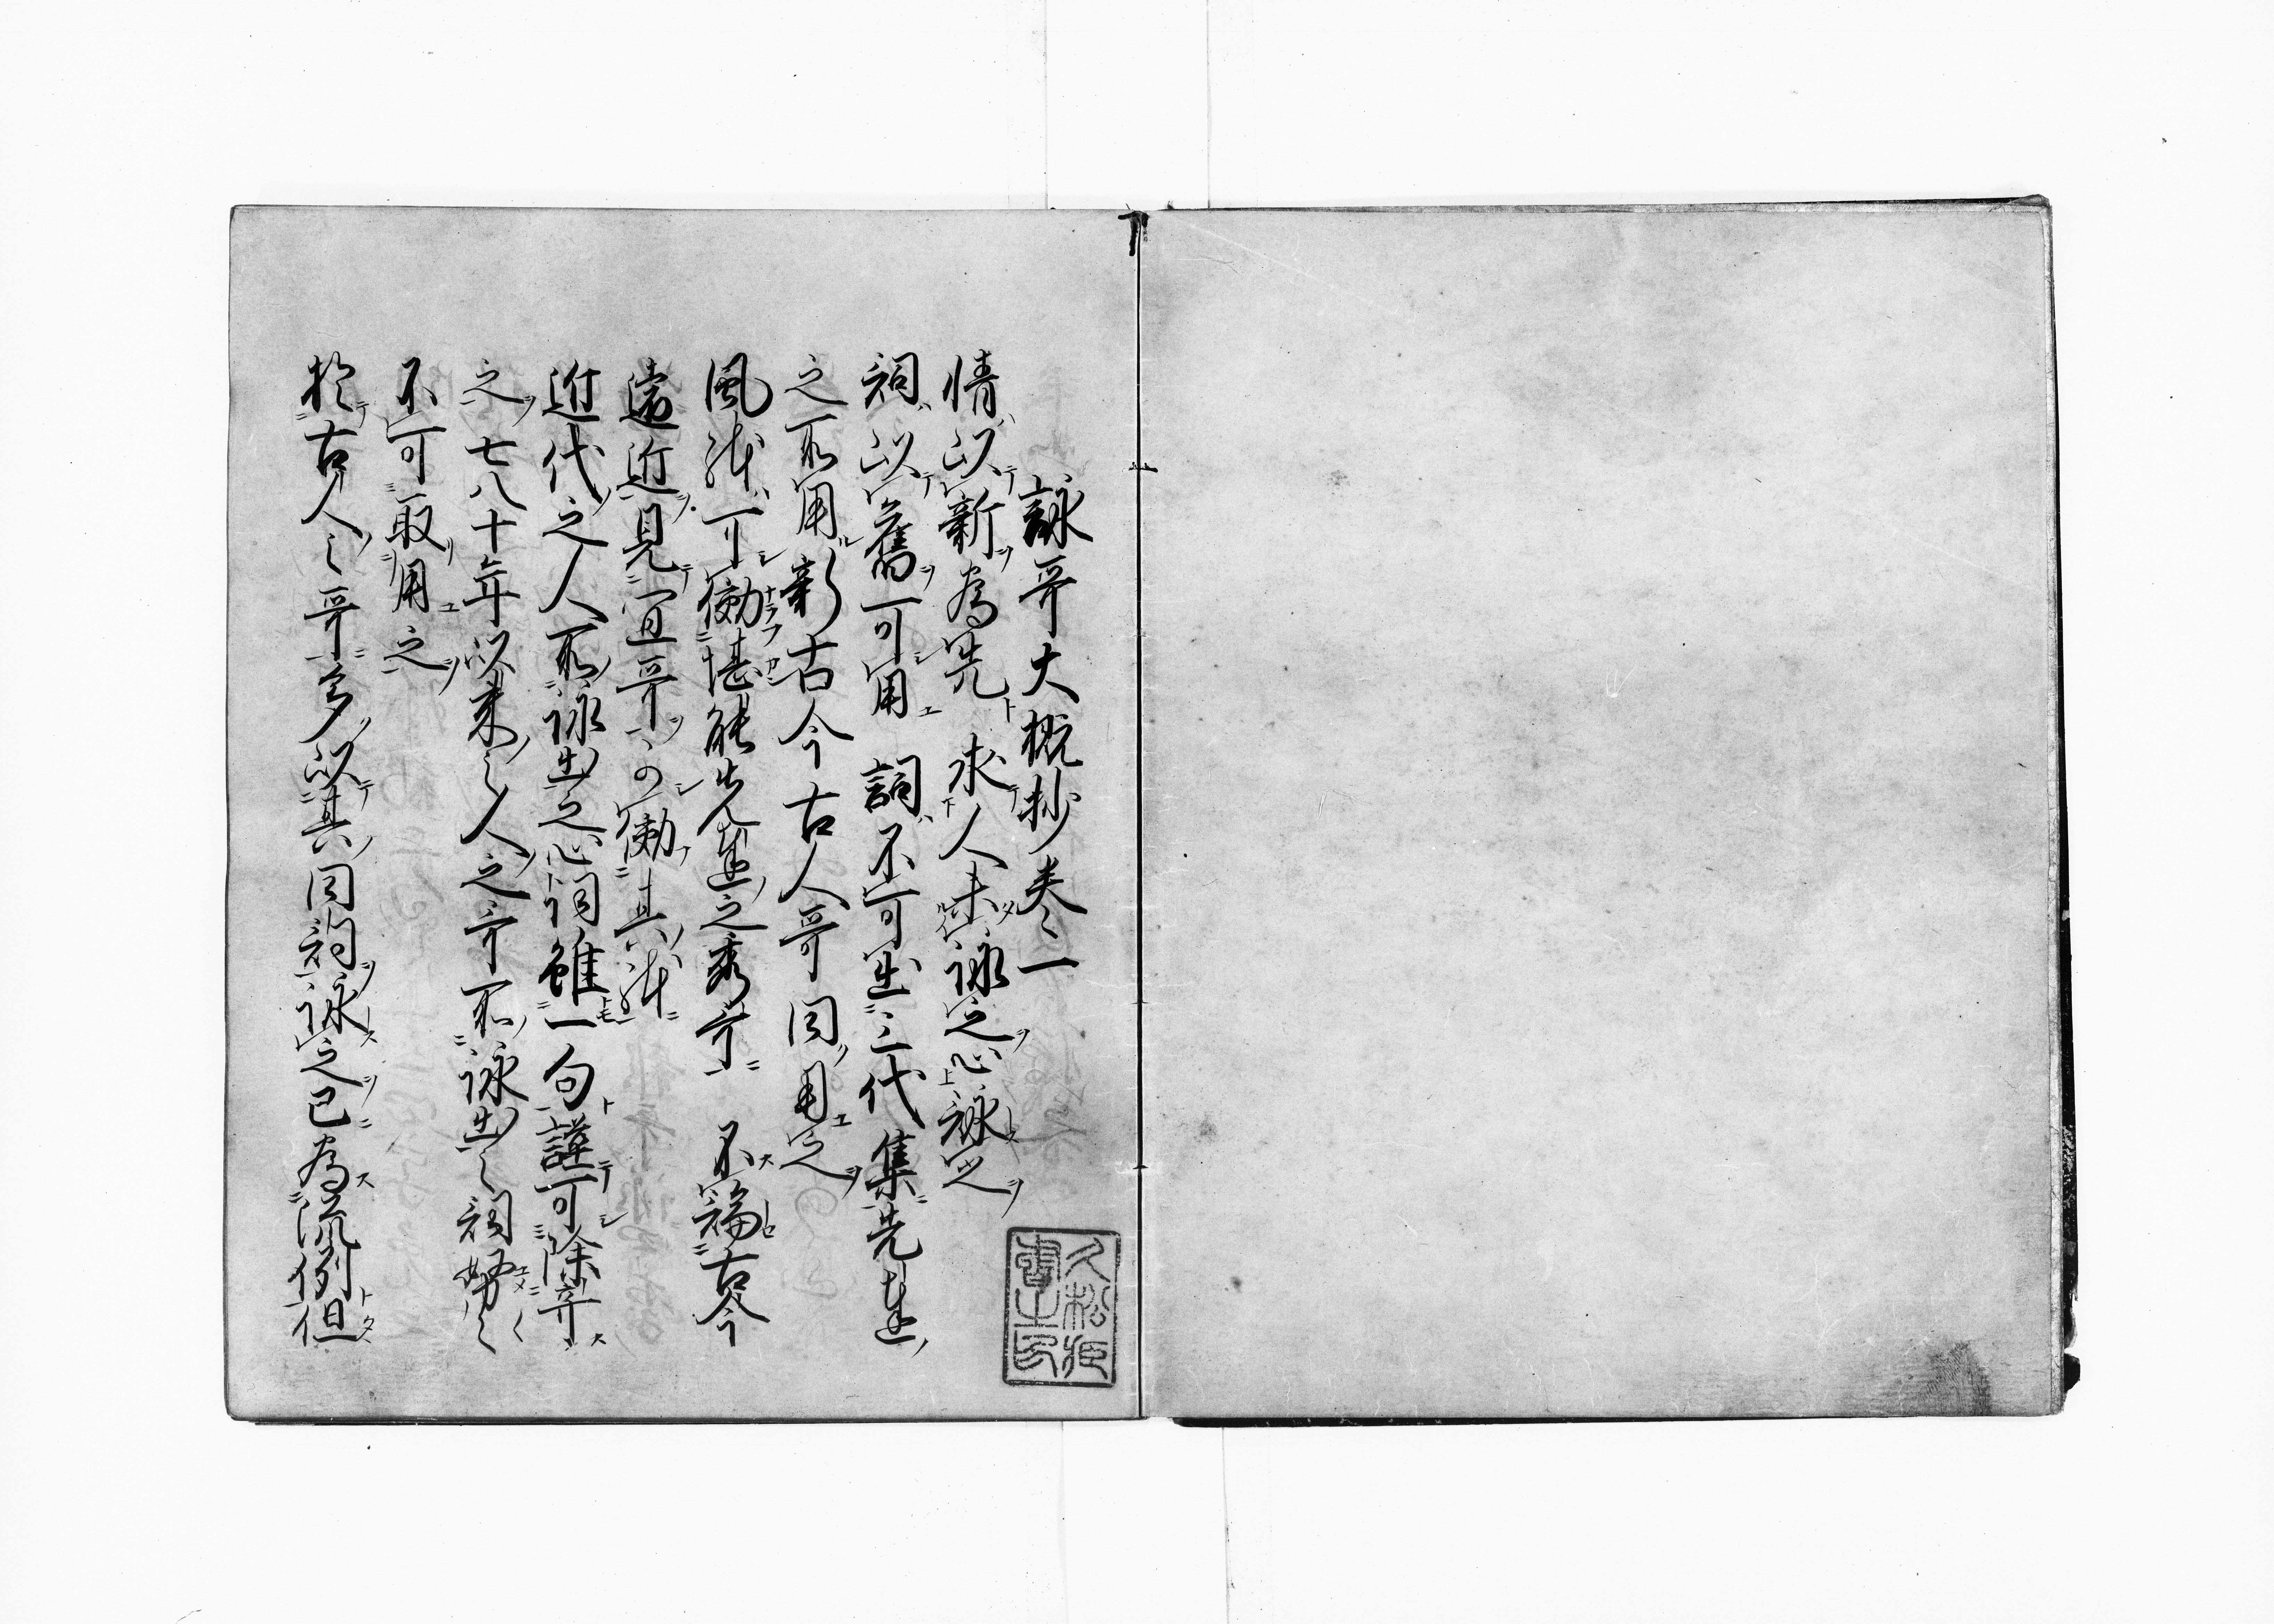 詠哥大概抄巻之一
情以新為先求人未詠之心詠之
詞以舊可用詞不可出三代集先達
之所用新古今古人哥同用之
風躰可效堪能先達之秀哥不論古今
遠近見宜哥可效其躰
近代之人所詠出之心詞雖一句謹可除弃
之七八十年以来之人之哥所詠出之詞努〱
不可取用之
於古人之哥多以其同詞詠之已為流例但
久松